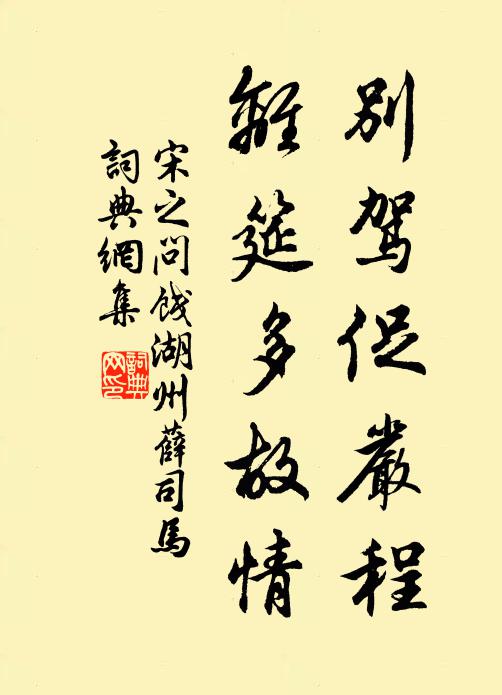 別駕促嚴程
離筵多故情
宋之問餞湖州薛司馬
詞典網集
詞典
网印